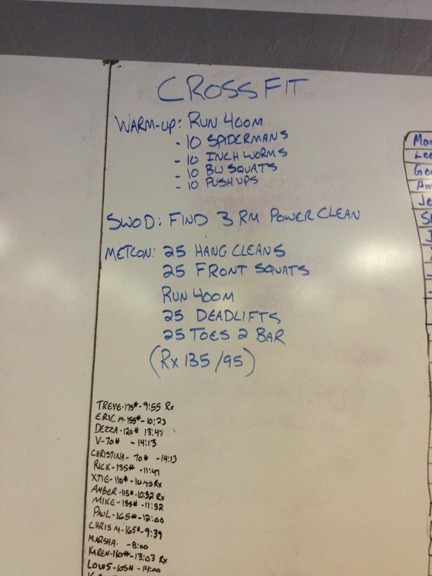 CROSSFIT
WARM-UP: RUN 400M
- 10 SPIDERMANS
- 10 INCH WORMS
- 10 BW SQUATS
- 10 PUSH UPS
SWOD: FIND 3 RM POWER CLEAN
METCON: 25 HANG CLEANS
25 FRONT SQUATS
RUN 400M
25 DEADLIFTS
25 TOES 2 BAR
(RX 135/95)
9:55 Rx
ERIC M-155#-10:23
DEZZA-120# 13:47
V-70# -14:13
CHRISTINA- 70# -14:13
RICK-135#-11:47
Rx
AMBER-115#-10:32 Rx
MIKE-135#-11:52
PAUL-165#-12:00
CHRIS M-165#-9:39
MARSHA- -8:00
KAREN-110#-13:03 Rx
LOUIS-105#-14:00